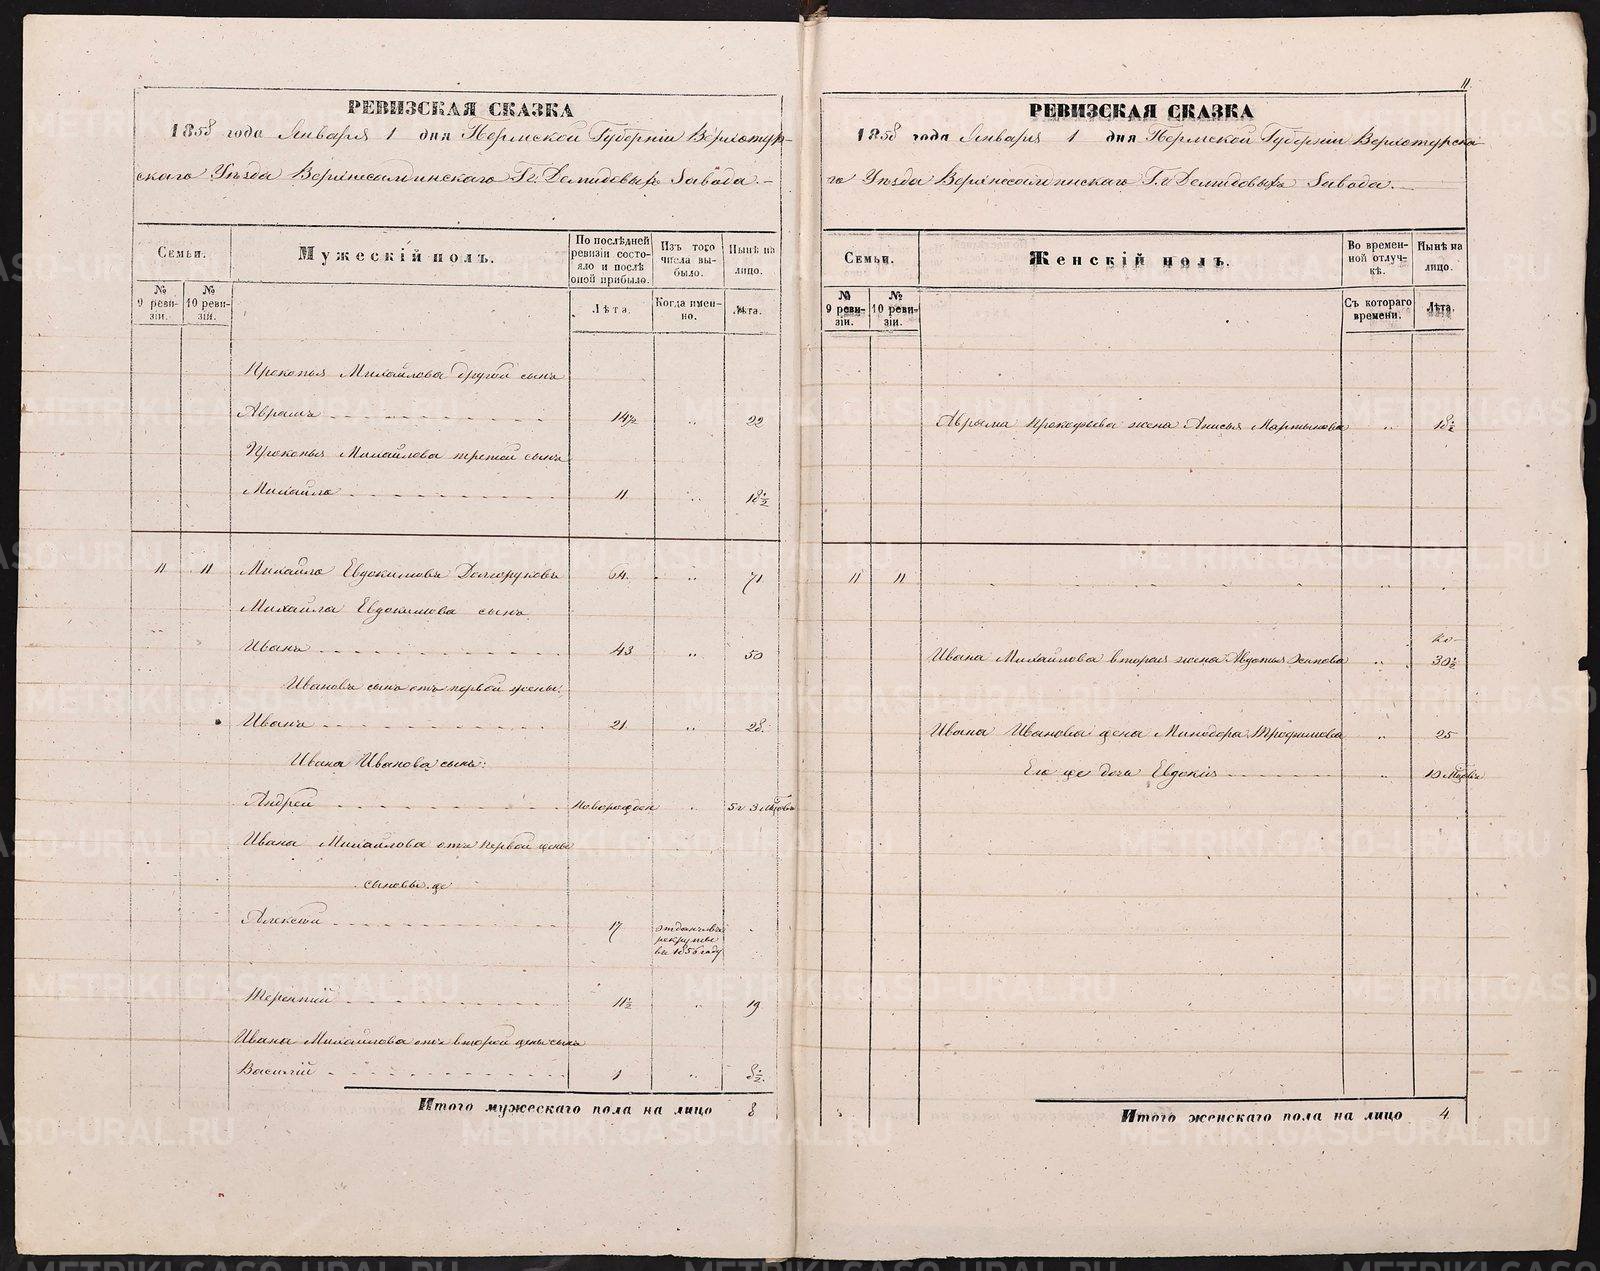 РЕВИЗСКАЯ СКАЗКА
1858 года Января 1 дня Пермской Губернiи Верхотур-
скаго Уѣзда Верхнесалдинскаго Гг. Демидовыхъ Завода.
Семьи.
Мужескiй полъ.
По послѣдней ревизiи состояло и послѣ оной прибыло.
Изъ того числа выбыло.
Нынѣ на лицо.
№ 9 ревизiи.
№ 10 ревизiи.
Лѣта.
Когда именно.
Лѣта.
Прокопья Михайлова другой сынъ
Аврамъ 14½ " 22
Прокопья Михайлова третiй сынъ
Михайло 11 " 18½
11 11 Михайло Евдокимовъ Долгоруковъ 64 " 71
Михайла Евдокимова сынъ
Иванъ 43 " 50
Ивановъ сынъ отъ первой жены:
Иванъ 21 " 28
Ивана Иванова сынъ:
Андрей новорожден " 5 г 3 мѣсовъ
Ивана Михайлова отъ первой жены
сыновья же
Алексѣй 17 отданъ въ
рекруты
въ 1856 году
Терентiй 11½ " 19
Ивана Михайлова отъ второй жены сынъ
Василiй 1 " 8½
Итого мужескаго пола на лицо 8
11.
РЕВИЗСКАЯ СКАЗКА
1858 года Января 1 дня Пермской Губернiи Верхотурска
го Уѣзда Верхнесалдинскаго Г.г Демидовыхъ Завода.
Семьи.
Женскiй полъ.
Во временной отлучкѣ.
Нынѣ на лицо.
№ 9 ревизiи.
№ 10 ревизiи.
Съ котораго времени.
Лѣта.
Аврама Прокофьева жена Анисья Мартынова " 18½
11 11
Ивана Михайлова вторая жена Авдотья " 30½
Ивана Иванова жена Минодора Трофимова " 25
Его же дочь Евдокiя " 10 мѣсовъ
Итого женскаго пола на лицо 4
METRIKI.GASO-URAL.RU